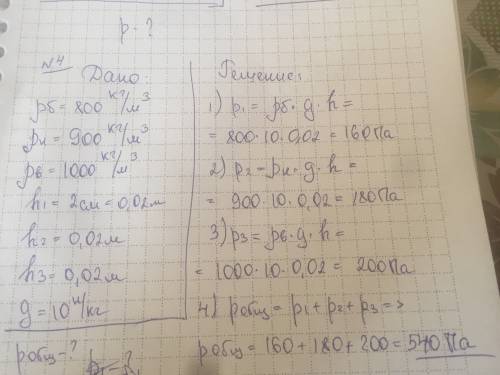 р-?
№4
Дано:
рб = 800 кг/м³
рн = 900 кг/м³
рв = 1000 кг/м³
h1 = 2см = 0,02м
h2 = 0,02м
h3 = 0,02м
g = 10 н/кг
робщ-?
Решение:
1) p1 = рб·g·h =
= 800·10·0,02 = 160Па
2) p2 - рн·g·h =
= 900·10·0,02 = 180Па
3) p3 = рв·g·h =
= 1000·10·0,02 = 200Па
4) робщ = p1 + p2 + p3 =>
робщ = 160 + 180 + 200 = 540 Па